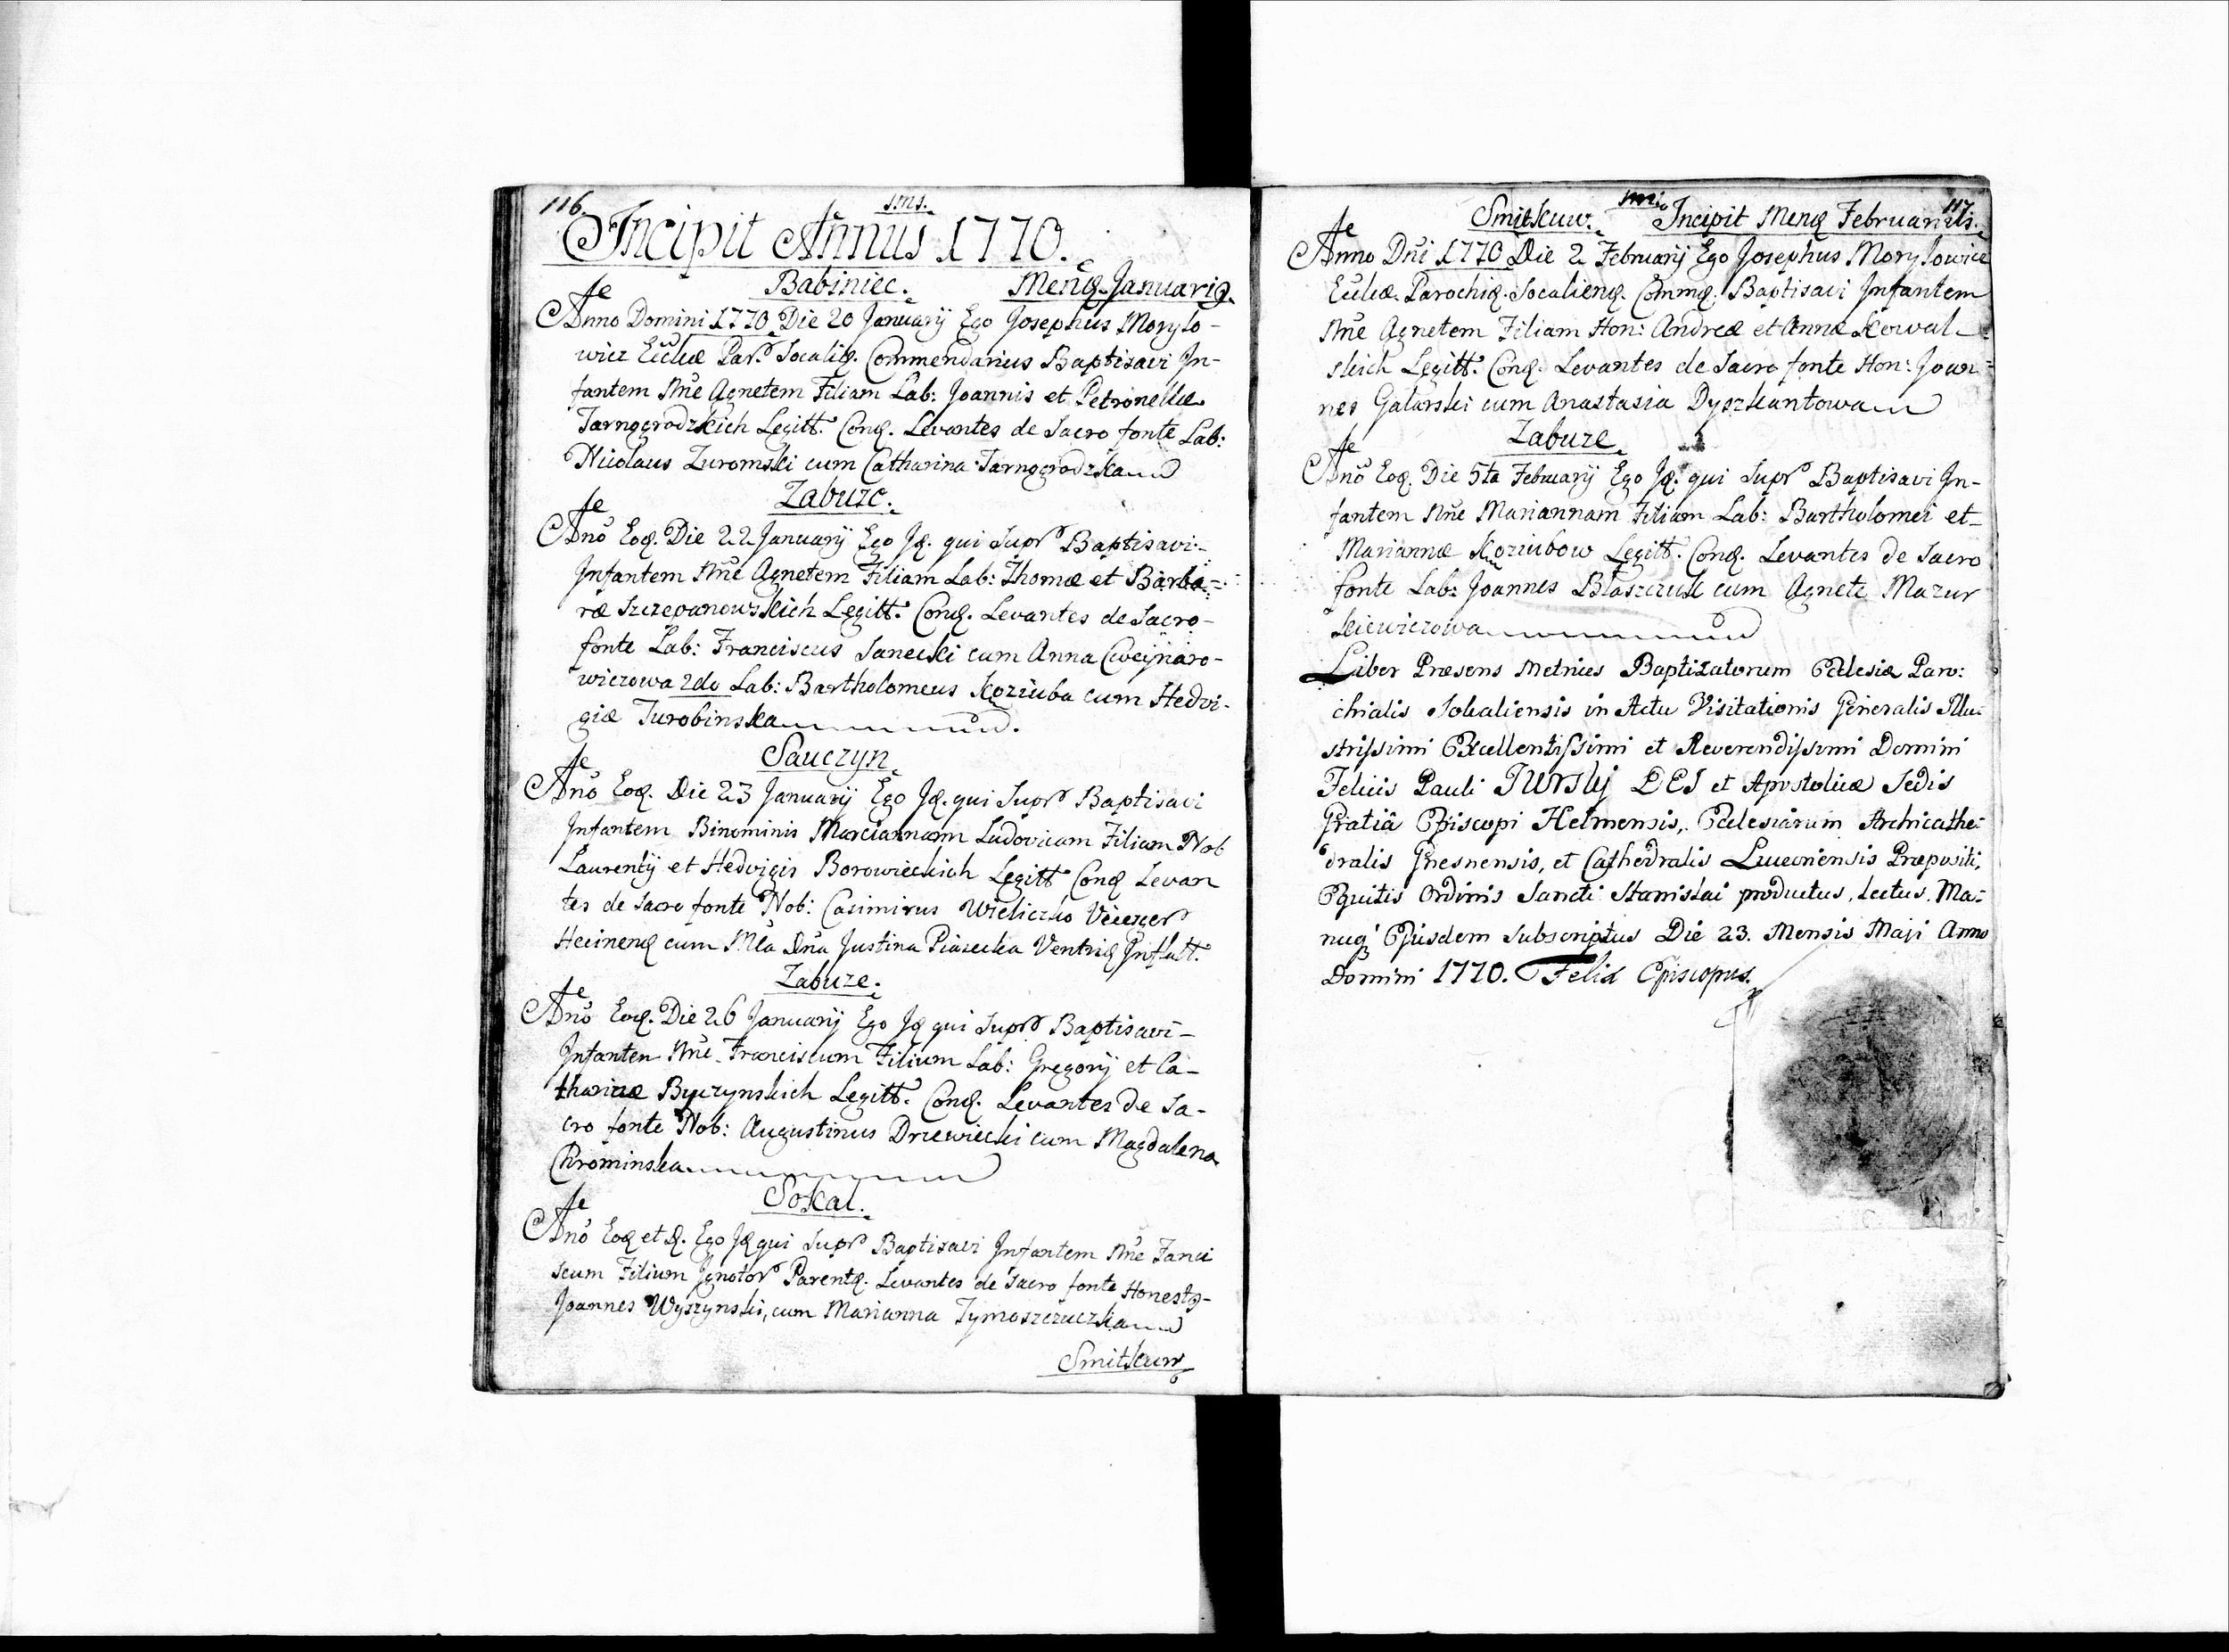 116.
J.M.J.
Incipit Annus 1770.
Babiniec. Mensis Januarius.
Anno Domini 1770 Die 20 January Ego Josephus Morylo-
wicz Ecclae Par. Socalis. Commendarius Baptisavi In-
fantem Nne Agnetem Filiam Lab: Joannis et Petronellae
Tarnogrodzkich Legitt. Conj. Levantes de Sacro fonte Lab:
Nicolaus Zuromski cum Catharina Tarnogrodzka
Zabuze.
Ano Eod. Die 22 January Ego Id. qui Supr Baptisavi
Infantem Nne Agnetem Filiam Lab: Thomæ et Barba=
ræ Szczepanowskich Legitt. Conj. Levantes de Sacro-
fonte Lab: Franciscus Sanecki cum Anna Cweynaro-
wiczowa 2do Lab: Bartholomeus Koziuba cum Hedvi-
giæ Turobinska
Sauczyn
Ano Eod. Die 23 January Ego Id. qui Supr Baptisavi
Infantem Binominis Marciannam Ludovicam Filiam Nob
Laurenty et Hedvigis Borowieckich Legitt Conj Levan
tes de Sacro fonte Nob: Casimirus Wieliczko
cum Justina Piasecka
Zabuze.
Ano Eod. Die 26 January Ego Id qui Supr Baptisavi-
Infanten Nne Franciscum Filium Lab: Gregory et Ca-
tharinæ Byczynskich Legitt. Conj. Levantes de Sa-
cro fonte Nob: Augustinus Drzewiecki cum Magdalena
Chrominska
Sokal.
Ano Eod et D. Ego Id qui Supr Baptisavi Infantem Nne Fanci
scum Filium Ignotor Parent. Levantes de Sacro fonte Honest-
Joannes Wyszynski, cum Marianna Tymoszczuczka
Smitkuw
117.
Smitkuw. Incipit Mens Februarius.
Anno Dni 1770 Die 2 February Ego Josephus Morylowicz
Ecclæ. Parochi. Socaliens. Comm. Baptisavi Infantem
Nne Agnetem Filiam Hon: Andreæ et Annæ Kowal-
skich Legitt. Conj. Levantes de Sacro fonte Hon: Joan=
nes Galarski cum Anastasia Dyszkantowa
Zabuze
Ano Eod. Die 5ta February Ego Id. qui Supr Baptisavi In-
fantem Nne Mariannam Filiam Lab: Bartholomei et
Mariannæ Koziubow Legitt. Conj. Levantes de Sacro
fonte Lab: Joannes Błaszczuk cum Agnete Mazur
kiewiczowa
Liber Præsens Metrices Baptizatorum Ecclesiæ Paro:
chialis Sokaliensis in Actu Visitationis Generalis Illu:
strissimi Excellentissimi et Reverendissimi Domini
Felicis Pauli TURSKJ DEJ et Apostolicæ Sedis
Gratiâ Episcopi Helmensis, Ecclesiarum Archicathe:
dralis Gnesnensis, et Cathedralis Luceoriensis Præpositi,
Equitis Ordinis Sancti Stanislai productus, lectus, Ma:
nuq' Ejusdem subscriptus Die 23. Mensis Maji Anno
Domini 1770. Felix Episcopus.